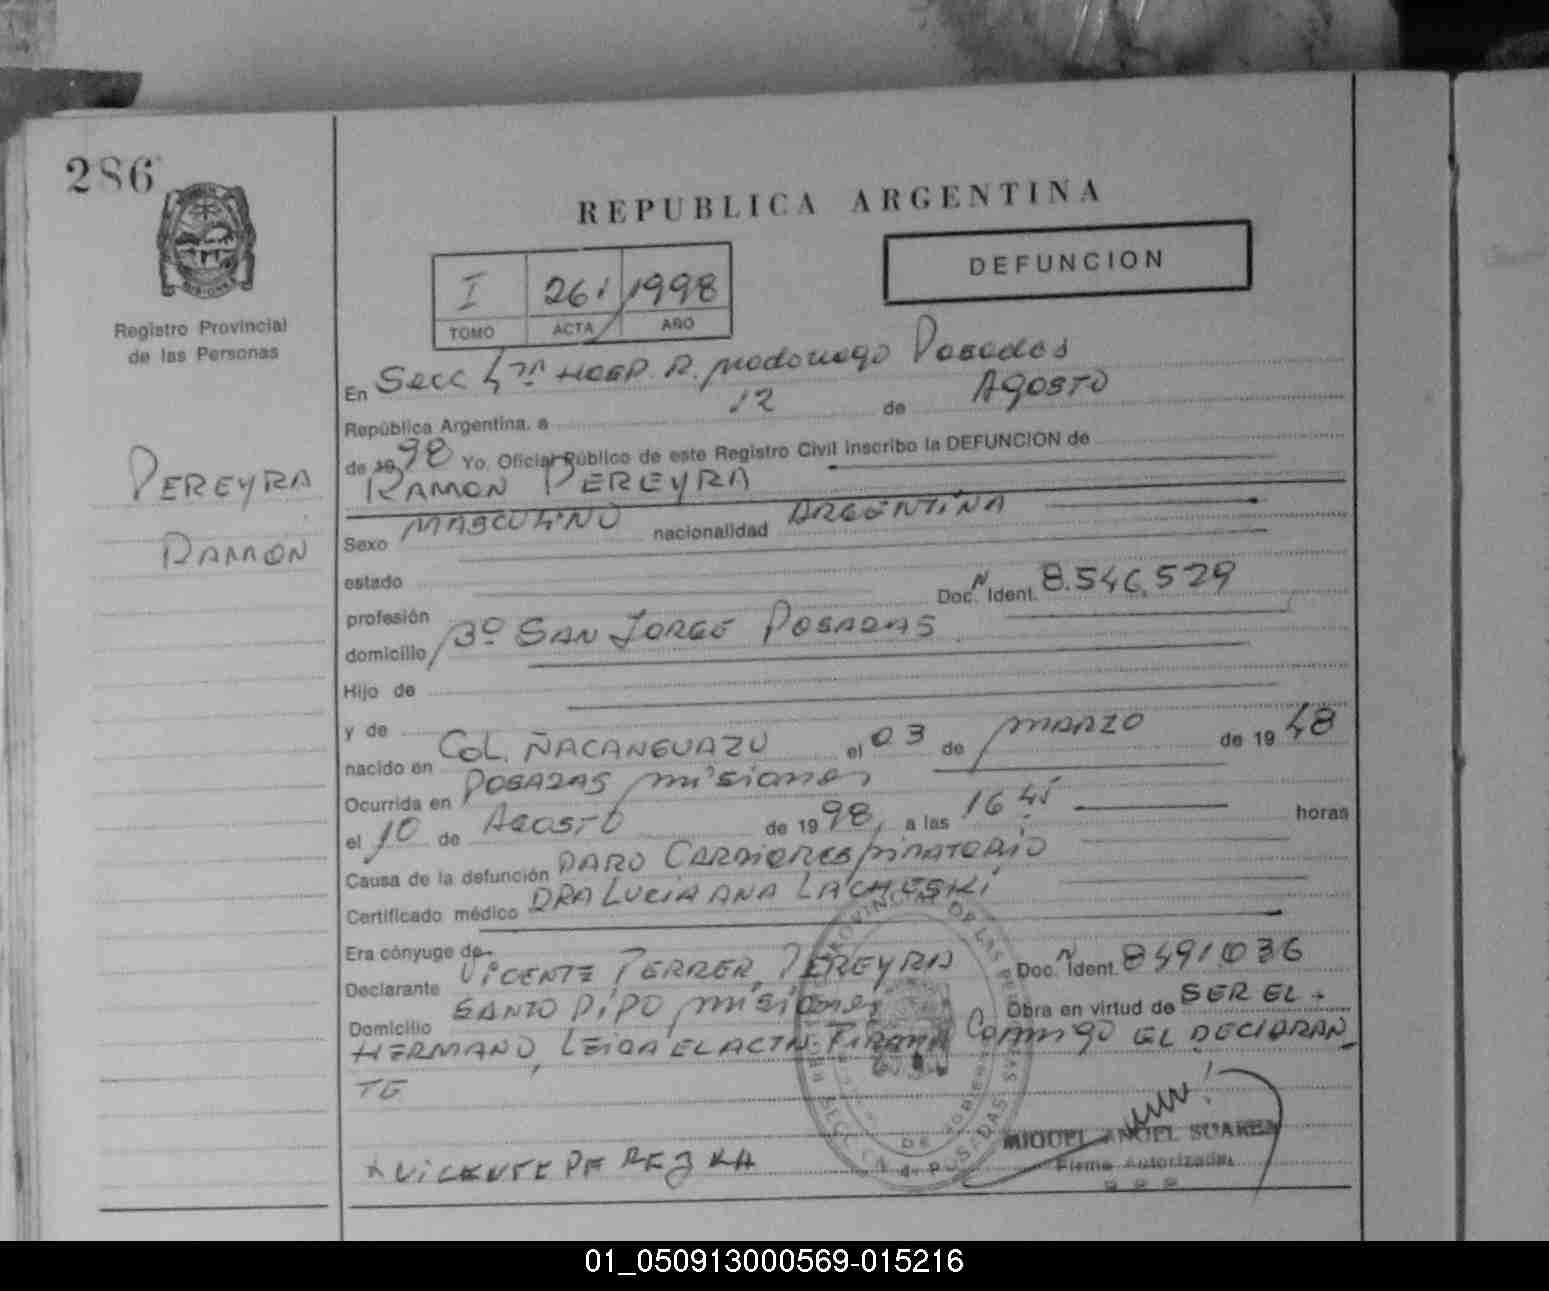 286
REPUBLICA ARGENTINA
I 261 1998
TOMO ACTA AÑO
DEFUNCION
Registro Provincial
de las Personas
PEREYRA
RAMON
En Secc 4ta HOSP. R. Madariaga Posadas
República Argentina, a 12 de AGOSTO
de 1998 Yo, Oficial Público de este Registro Civil inscribo la DEFUNCION de
RAMON PEREYRA
Sexo MASCULINO nacionalidad ARGENTINA
estado
profesión Doc. N Ident. 8.546.529
domicilio Bº SAN JORGE POSADAS
Hijo de
y de
nacido en COL. ÑACANGUAZU el 03 de MARZO de 1948
Ocurrida en POSADAS misiones
el 10 de AGOSTO de 1998, a las 16 45 horas
Causa de la defunción PARO CARDIORESPIRATORIO
Certificado médico DRA LUCIA ANA LACHESKI
Era cónyuge de
Declarante VICENTE FERRER PEREYRA Doc. N Ident. 8491036
Domicilio SANTO PIPO misiones Obra en virtud de SER EL
HERMANO, LEIDA EL ACTA FIRMA COMIGO EL DECLARAN
TE
VICENTE PEREYRA
MIGUEL ANGEL SUAREZ
Firma Autorizada
01_050913000569-015216